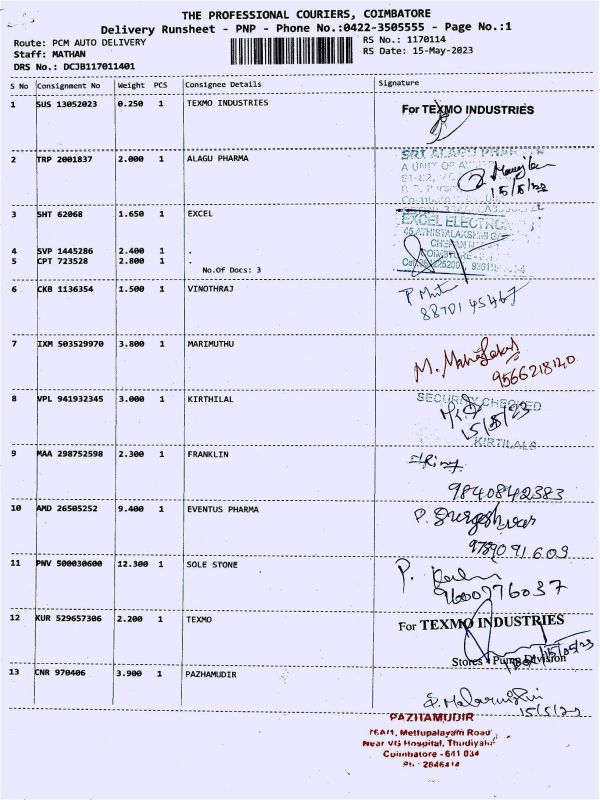 THE PROFESSIONAL COURIERS, COIMBATORE
Delivery Runsheet - PNP - Phone No.:0422-3505555 - Page No.:1
Route: PCM AUTO DELIVERY
RS No.: 1170114
Staff: MATHAN
RS Date: 15-May-2023
DRS No.: DCJB117011401
S No Consignment No Weight PCS Consignee Details Signature
1 SUS 13052023 0.250 1 TEXMO INDUSTRIES
For TEXMO INDUSTRIES
2 TRP 2001837 2.000 1 ALAGU PHARMA
SRI ALAGU
A UNIT OF
3 SHT 62068 1.650 1 EXCEL
EXCEL ELECTRO
4 SVP 1445286 2.400 1 .
5 CPT 723528 2.800 1 .
No.Of Docs: 3
6 CKB 1136354 1.500 1 VINOTHRAJ
8870145467
7 IXM 503529970 3.800 1 MARIMUTHU
8 VPL 941932345 3.000 1 KIRTHILAL
SECURITY CHECKED
15/5/23
KIRTILALS
9 MAA 298752598 2.300 1 FRANKLIN
9840842383
10 AMD 26505252 9.400 1 EVENTUS PHARMA
9789091609
11 PNV 500030600 12.300 1 SOLE STONE
9600276037
12 KUR 529657306 2.200 1 TEXMO
For TEXMO INDUSTRIES
15/05/23
Stores Pump Division
13 CNR 970406 3.900 1 PAZHAMUDIR
15/5/23
PAZHAMUDIR
76A/1, Mettupalayam Road
Near VG Hospital, Thudiyalur
Coimbatore - 641 034
Ph : 2646414